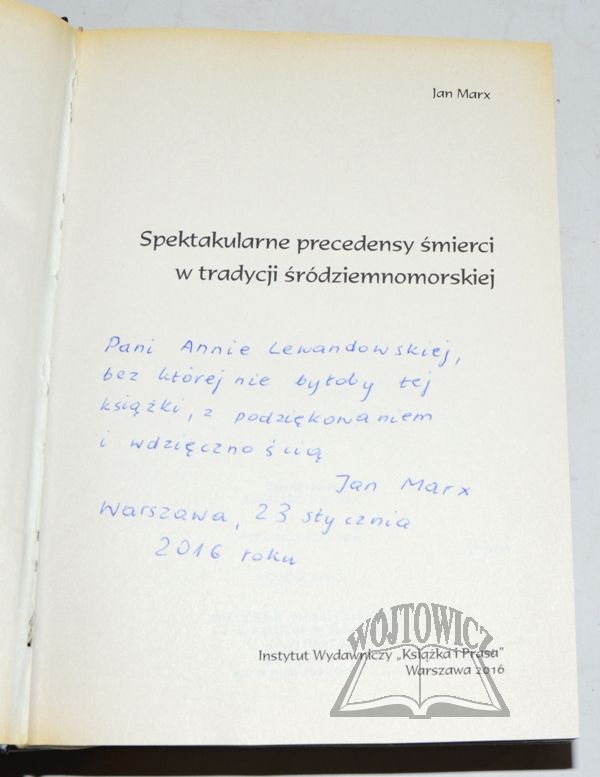 Jan Marx
Spektakularne precedensy śmierci
w tradycji śródziemnomorskiej
Pani Annie Lewandowskiej,
bez której nie byłoby tej
książki, z podziękowaniem
i wdzięcznością
Jan Marx
Warszawa, 23 stycznia
2016 roku
WÓJTOWICZ
Instytut Wydawniczy „Książka i Prasa"
Warszawa 2016